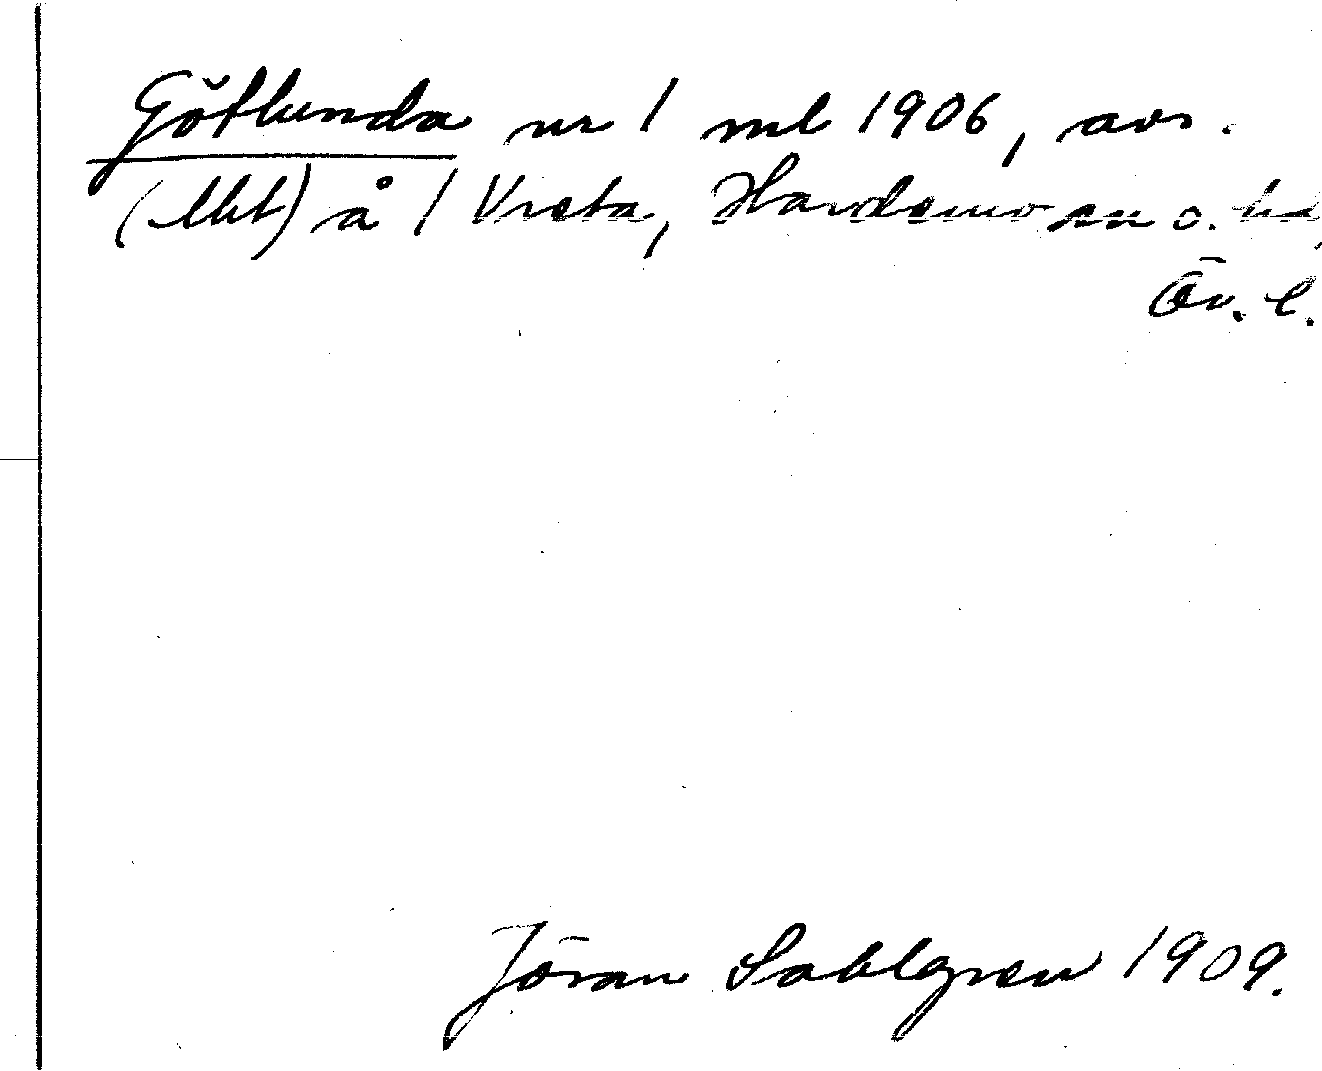 Götlunda nr 1 ml 1906, avs.
(lht) å 1 Vreta, Hardemo sn o. hd,
Ör. l.
Jöran Sahlgren 1909.